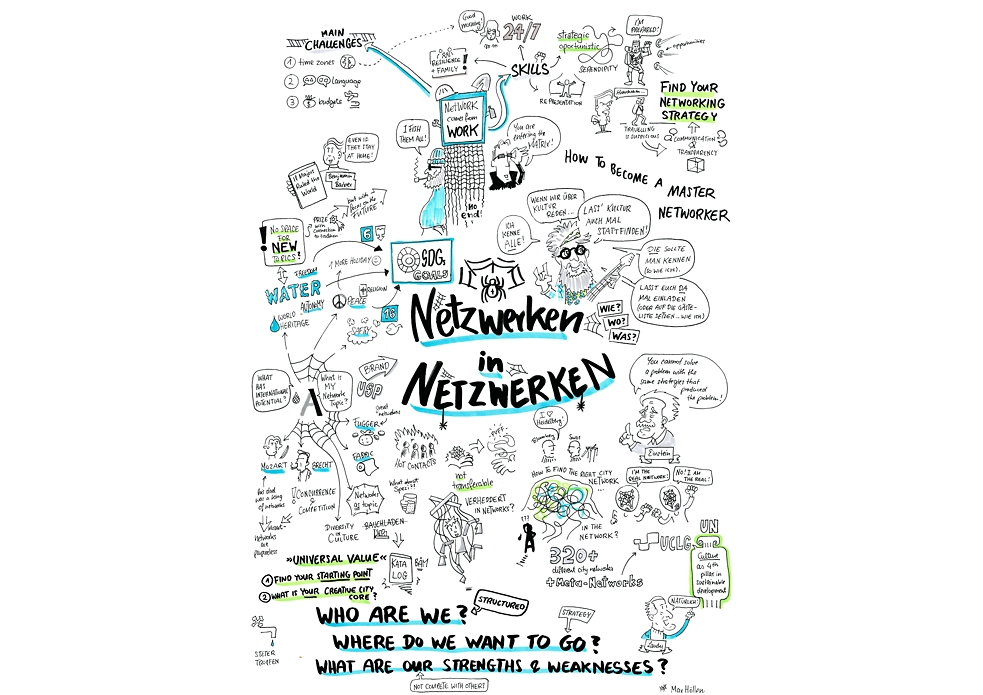 MAIN
CHALLENGES
1 time zones
2 language
3 budgets
Good
morning!
WORK
24/7
RESILIENCE
+ FAMILY
!
SKILLS
strategic
oportunistic
SERENDIPITY
REPRESENTATION
I'M
PREPARED!
opportunities
FIND YOUR
NETWORKING
STRATEGY
TRAVELLING
IS SUSPICIOUS
COMMUNICATION
TRANSPARENCY
NETWORK
comes from
WORK
I FISH
THEM ALL!
You are
entering the
MATRIX!
No
end!
HOW TO BECOME A MASTER
NETWORKER
EVEN IF
THEY STAY
AT HOME!
If Mayors
Ruled the
World
Benjamin
Barber
PRIZE
with
connection
to tradition
but with
focus on the
FUTURE
! NO SPACE
FOR
NEW
TOPICS!
FREEDOM
WATER
AUTONOMY
WORLD
HERITAGE
1 MORE HOLIDAY
RELIGION
PEACE
SAFETY
6
16
SDGs
GOALS
WENN WIR ÜBER
KULTUR
REDEN...
LASST KULTUR
AUCH MAL
STATTFINDEN!
ICH
KENNE
ALLE!
DIE SOLLTE
MAN KENNEN
(SO WIE ICH).
LASST EUCH DA
MAL EINLADEN
(ODER AUF DIE GÄSTE-
LISTE SETZEN... WIE ICH)
WIE?
WO?
WAS?
Netzwerken
in
NETZWERKEN
WHAT
HAS
INTERNATIONAL
POTENTIAL?
A
What is
MY
Network
Topic?
BRAND
USP
FUGGER
great
networkers
FABRIC
MOZART
BRECHT
His dad
was a king
of networks
Heart-
networks
are
priceless
CONCURRENCE
COMPETITION
Network
as topic
DIVERSITY
CULTURE
BAUCHLADEN-
What about
Spezi??
HOT CONTACTS
PUFF
not
transferable
VERHEDDERT
IN NETWORKS?
I ♡
Heidelberg!
Bloomberg
HOW TO FIND THE RIGHT CITY
NETWORK
...
IN THE
NETWORK?
???
You cannot solve
a problem with the
same strategies that
produced
the problem!
Einstein
I'M THE
REAL NETWORK!
NO! I AM
THE REAL!
320+
different city networks
+Meta-Networks
UCLG
UN
Culture
as 4th
pillar in
sustainable
development
NATÜRLICH!
»UNIVERSAL VALUE«
1 FIND YOUR STARTING POINT
2 WHAT IS YOUR CREATIVE CITY
CORE?
KATA
LOG
BÄM
STETER
TROPFEN
WHO ARE WE?
STRUCTURED
WHERE DO WE WANT TO GO?
STRATEGY
WHAT ARE OUR STRENGTHS & WEAKNESSES?
NOT COMPETE WITH OTHERS
Max Höllen